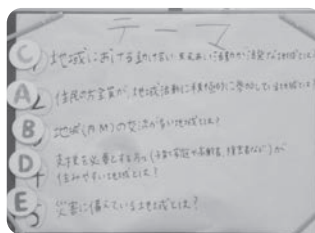 テーマ
C 1 地域における助け合い・支えあい活動が活発な地域とは?
A 2 住民の方全員が、地域活動に積極的に参加している地域とは?
B 3 地域(内・外)の交流が多い地域とは?
D 4 支援を必要とする方々(子育て家庭や高齢者、障害者など)が
住みやすい地域とは!
E 5 災害に備えている地域とは?